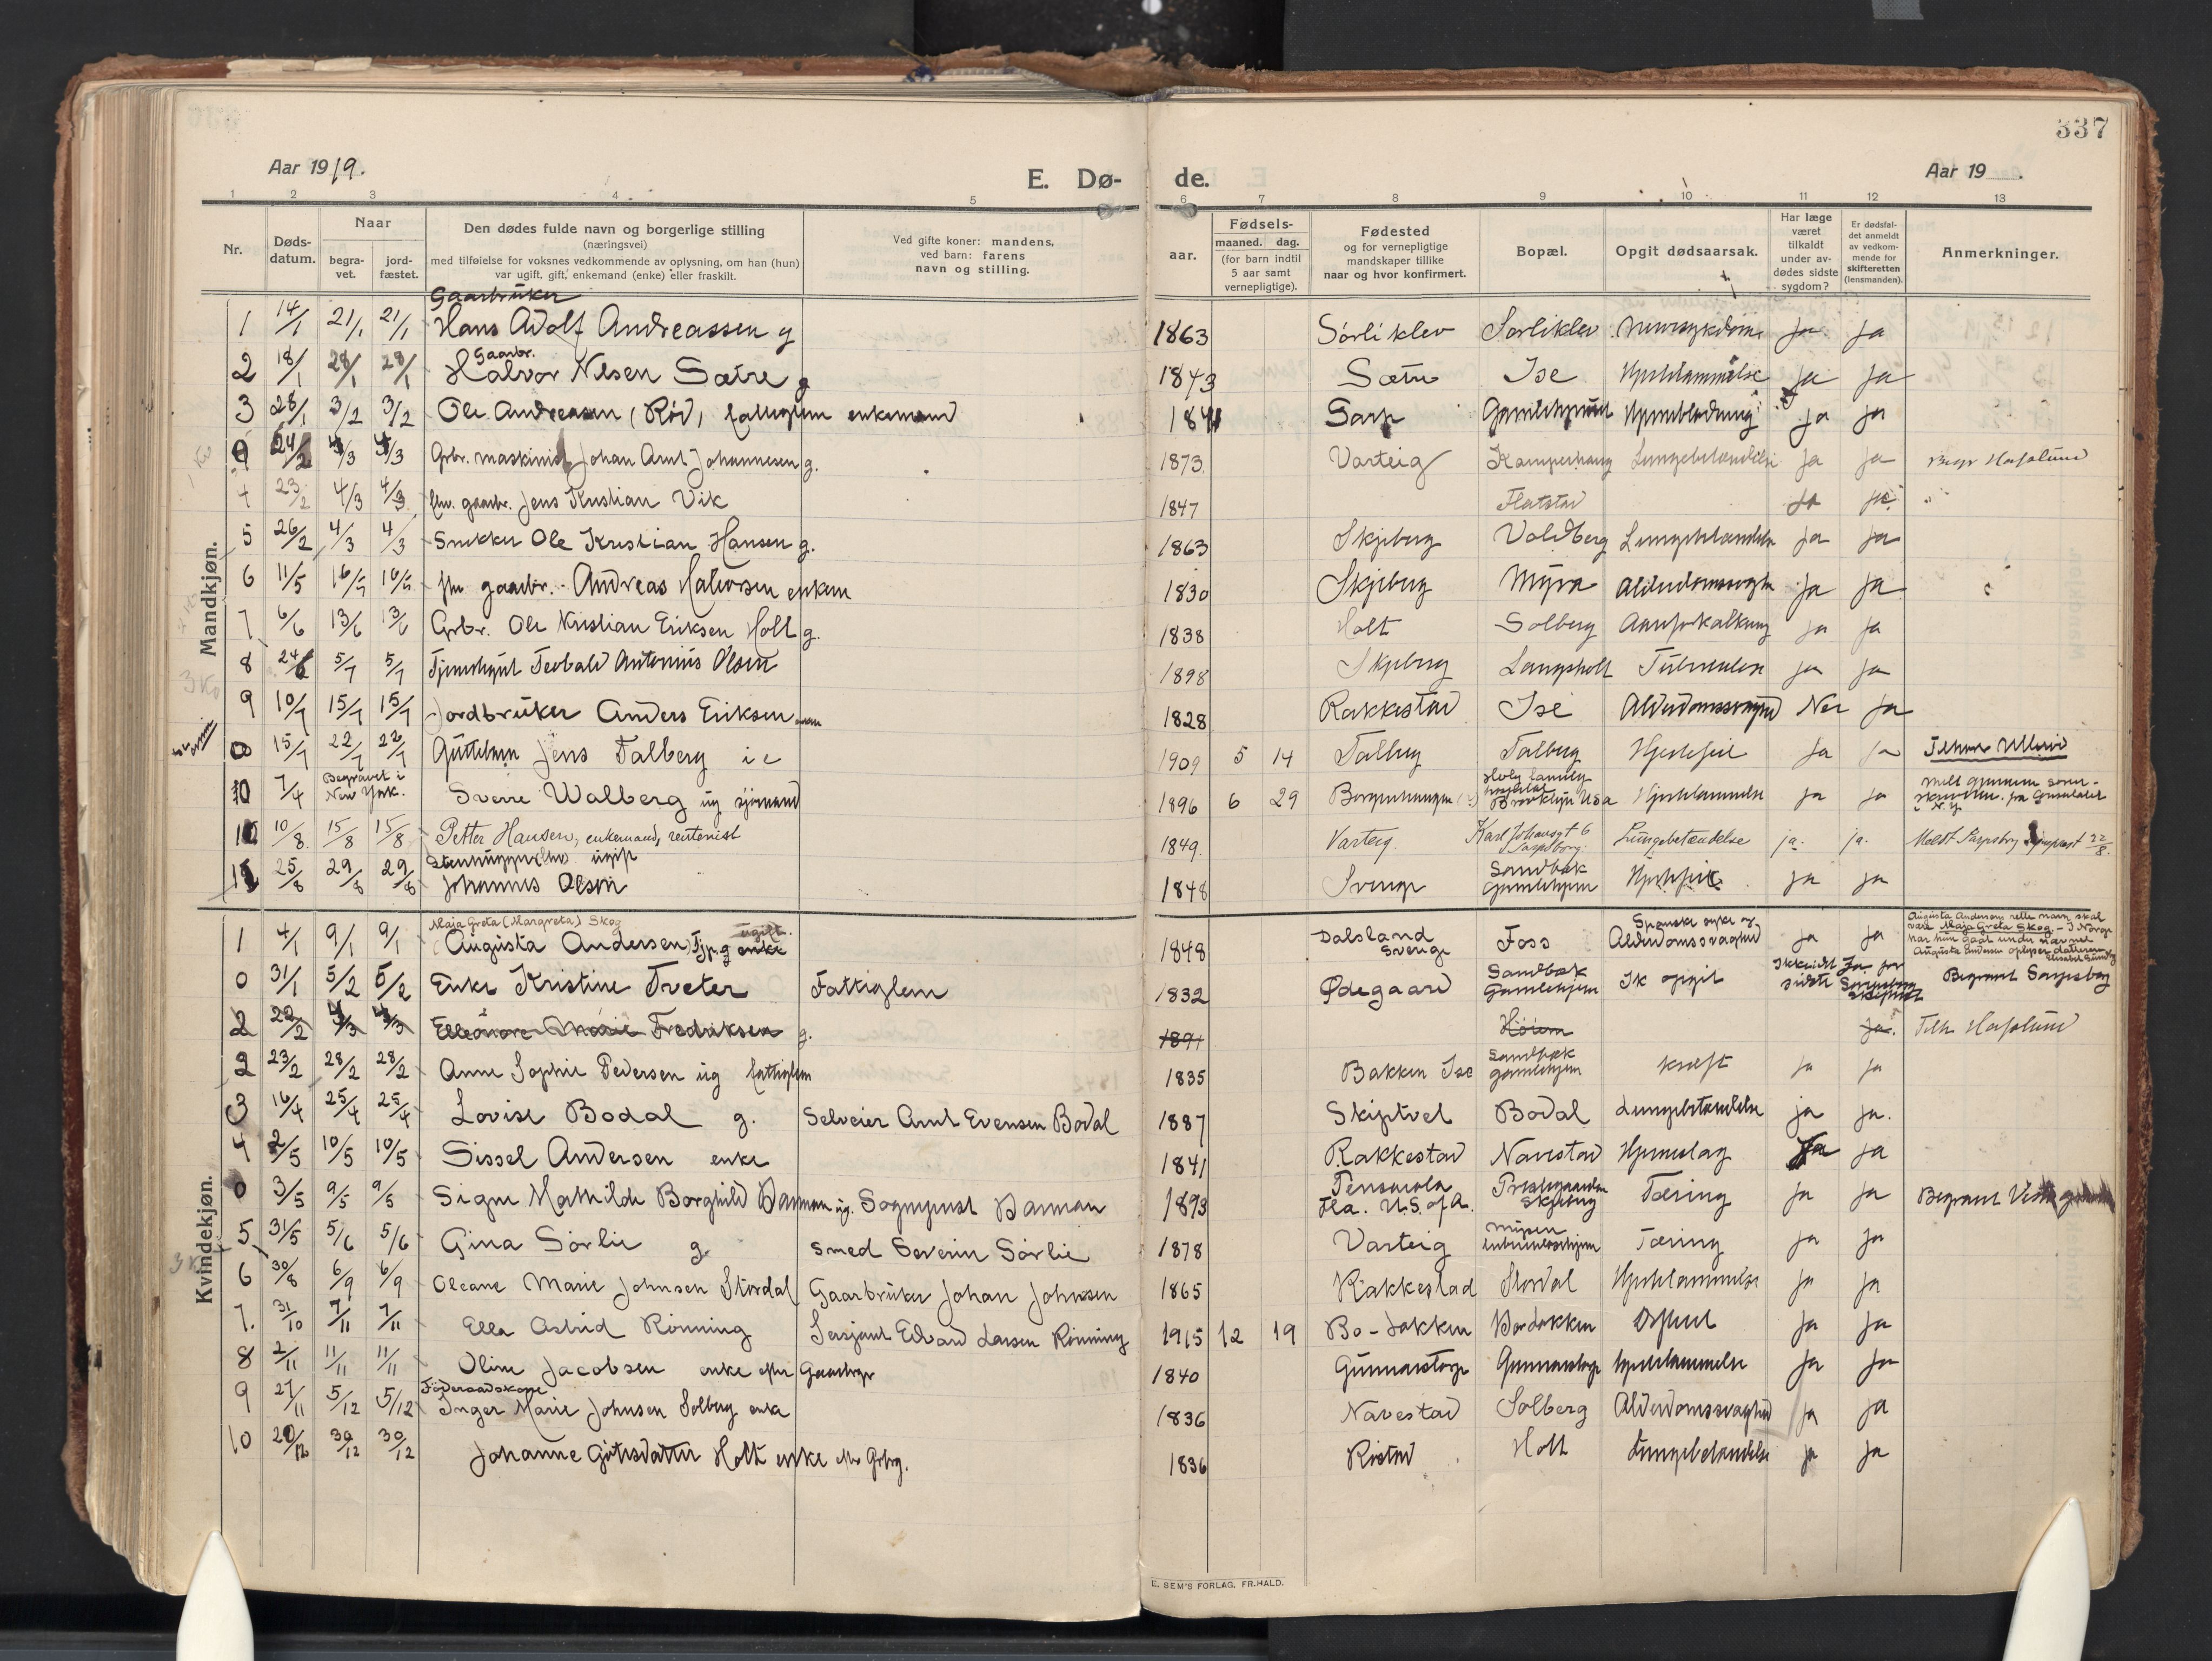 337
Aar 1919.
E. Dø- de.
Aar 19
1 2 3 4 5 6 7 8 9 10 11 12 13
Nr.
Døds-
datum.
Naar
begra-
vet.
jord-
fæstet.
Den dødes fulde navn og borgerlige stilling
(næringsvei)
med tilføielse for voksnes vedkommende av oplysning, om han (hun)
var ugift, gift, enkemand (enke) eller fraskilt.
Ved gifte koner: mandens,
ved barn: farens
navn og stilling.
Fødsels-
aar.
maaned. dag.
(for barn indtil
5 aar samt
vernepligtige).
Fødested
og for vernepligtige
mandskaper tillike
naar og hvor konfirmert.
Bopæl.
Opgit dødsaarsak.
Har læge
været
tilkaldt
under av-
dødes sidste
sygdom?
Er dødsfal-
det anmeldt
av vedkom-
mende for
skifteretten
(lensmanden).
Anmerkninger.
Mandkjøn.
Gaarbruker
1 14/1 21/1 21/1 Hans Adolf Andreassen g 1863 Sørliklev Sørliklev ja ja
Gaarbr.
2 18/1 28/1 28/1 Halvor Nilsen Sætre g 1843 Sætre Ise Hjertelammelse ja ja
3 28/1 3/2 3/2 Ole Andreasen (Rød) fattiglem enkemand Sarp Gamlehjemmet Hjerneblødning ja ja
0 24/2 4/3 4/3 Grbr. maskinist Johan Arnt Johannesen g. 1873 Varteig Lungebetændelse ja ja Begr Hafslund
4 23/2 4/3 4/3 fhv. gaarbr. Jens Kristian Vik 1847 Flatstad ja ja "
5 26/2 4/3 4/3 Snekker Ole Kristian Hansen g. 1863 Skjeberg Voldberg Lungebetændelse ja ja
6 11/5 16/5 16/5 fhv gaarbr. Andreas Halvorsen enkem 1830 Skjeberg Myra Alderdomssvaghet ja ja
7 6/6 13/6 13/6 Grbr. Ole Kristian Eriksen Holt g. 1838 Holt Solberg Aareforkalkning ja ja
8 24/6 5/7 5/7 Tjenestegut Teobald Antonius Olsen 1898 Skjeberg Langsholt Tuberkulose ja ja
9 10/7 15/7 15/7 Jordbruker Anders Eriksen 1828 Rakkestad Ise Alderdomssvaghed Nei ja
0 15/7 22/7 22/7 Guttebarn Jens Talberg 1909 5 14 Talberg Talberg Hjertefeil ja ja
10 7/4 Begravet i
New York. Sverre Walberg ug sjømand 1896 6 29 Borgenhaugen Holy family
hospital
Brooklyn Usa Hjertelammelse ja ja
11 10/8 15/8 15/8 Petter Hansen, enkemand, rentenist 1849 Varteig Karl Johansgt 6
Sarpsborg. Lungebetændelse ja. ja. Meldt Sarpsborg sogneprest 22/8.
25/8 29/8 29/8 Stenhugger ugift
Johannes Olsen 1848 Sverige Sandbæk
Gamlehjem Hjertefeil ja ja
Kvindekjøn.
Maja Greta (Margreta) Skog
1 4/1 9/1 9/1 (Augusta Andersen) ugift. enke 1848 Dalsland
Sverige Foss Spanske syke og
Alderdomssvaghed ja ja Augusta Andersens rette navn skal
være Maja Greta Skog - I Norge
har hun gaat under navnet
Augusta Andersen oplyser datteren
Elisabet Sundby
0 31/1 5/2 5/2 Enke Kristine Tveter Fattiglem 1832 Ødegaard Sandbæk
Gamlehjem Ik opgit Ikke i det
sidste Ja for
Sarpsborg
skifteret Begravet Sarpsborg
2 22/2 4/3 4/3 Elleonore Marie Fredriksen g. 1891 Høium ja. Tilh. Hafslund
2 23/2 28/2 28/2 Anne Sophie Pedersen ug fattiglem 1835 Bakken Ise Sandbæk
gamlehjem kræft ja ja
3 16/4 25/4 25/4 Lovise Bodal g. Selveier Arnt Evensen Bodal 1887 Skiptvet Bodal Lungebetændelse ja ja.
4 2/5 10/5 10/5 Sissel Andersen enke 1841 Rakkestad Navestad Hjerneslag ja ja
0 3/5 9/5 9/5 Signe Mathilde Borghild Barman ug. Sogneprest Barman 1893 Pensacola
Fla. U.S. of A. Prestegaarden
Skjeberg Tæring ja ja Begravet
5 31/5 5/6 5/6 Gina Sørlie g. smed Severin Sørlie 1878 Varteig Mysen
tuberkulosehjem Tæring ja ja
6 30/8 6/9 6/9 Oleane Marie Johnsen Stordal Gaarbruker Johan Johnsen 1865 Rakkestad Stordal Hjertelammelse ja ja
7. 31/10 7/11 7/11 Ella Astrid Rønning Sersjant Edvard Larsen Rønning 1915 12 19 Bo-dakken Bordakken ja ja
8 2/11 11/11 11/11 Oline Jacobsen enke efter Gaardbrgr 1840 Gunnarstorp Gunnarstorp hjertelammelse ja ja
Føderaadskone
9 27/11 5/12 5/12 Inger Marie Johnsen Solberg enke 1836 Navestad Solberg Alderdomssvaghed ja ja
10 20/12 30/12 30/12 Johanne Gutesdatter Holt enke efter Grbrg. 1836 Ristad Holt Lungebetændelse ja ja
E. SEM'S FORLAG, FR.HALD.